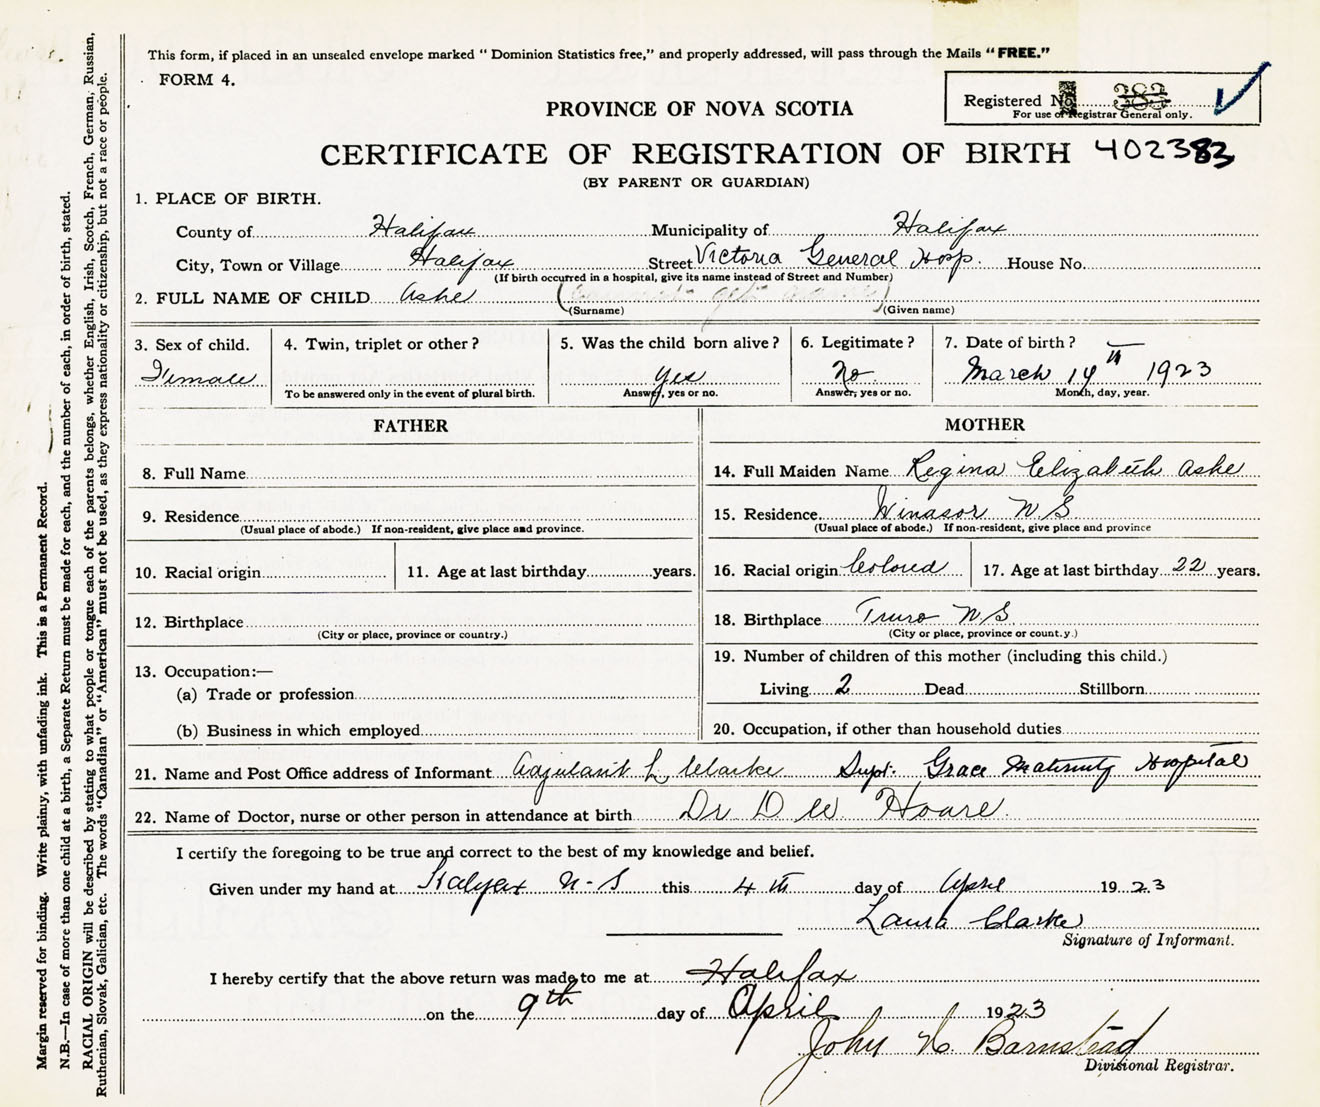 This form, if placed in an unsealed envelope marked “ Dominion Statistics free,” and properly addressed, will pass through the Mails “ FREE.”
FORM 4.
Registered No. 383
For use of Registrar General only.
PROVINCE OF NOVA SCOTIA
CERTIFICATE OF REGISTRATION OF BIRTH 402383
(BY PARENT OR GUARDIAN)
1. PLACE OF BIRTH.
County of Halifax Municipality of Halifax
City, Town or Village Halifax Street Victoria General Hosp. House No.
(If birth occurred in a hospital, give its name instead of Street and Number)
2. FULL NAME OF CHILD Ashe
(Surname) (Given name)
3. Sex of child. 4. Twin, triplet or other ? 5. Was the child born alive ? 6. Legitimate ? 7. Date of birth ?
Female yes no. March 14th 1923
To be answered only in the event of plural birth. Answer, yes or no. Answer, yes or no. Month, day, year.
FATHER MOTHER
8. Full Name 14. Full Maiden Name Regina Elizabeth Ashe
9. Residence 15. Residence Windsor N S
(Usual place of abode.) If non-resident, give place and province. (Usual place of abode.) If non-resident, give place and province
10. Racial origin 11. Age at last birthday years. 16. Racial origin Colored 17. Age at last birthday 22 years.
12. Birthplace 18. Birthplace Truro N S
(City or place, province or country.) (City or place, province or country.)
13. Occupation:— 19. Number of children of this mother (including this child.)
(a) Trade or profession Living 2 Dead Stillborn
(b) Business in which employed 20. Occupation, if other than household duties
21. Name and Post Office address of Informant Adjutant L Clarke Supt. Grace Maternity Hospital
22. Name of Doctor, nurse or other person in attendance at birth Dr D W Hoare
I certify the foregoing to be true and correct to the best of my knowledge and belief.
Given under my hand at Halifax N-S this 4th day of April 1923
Laura Clarke
Signature of Informant.
I hereby certify that the above return was made to me at Halifax
on the 9th day of April 1923
John H. Barnstead
Divisional Registrar.
Margin reserved for binding. Write plainly, with unfading ink. This is a Permanent Record.
N.B.—In case of more than one child at a birth, a Separate Return must be made for each, and the number of each, in order of birth, stated.
RACIAL ORIGIN will be described by stating to what people or tongue each of the parents belongs, whether English, Irish, Scotch, French, German, Russian,
Ruthenian, Slovak, Galician, etc. The words “Canadian” or “American” must not be used, as they express nationality or citizenship, but not a race or people.